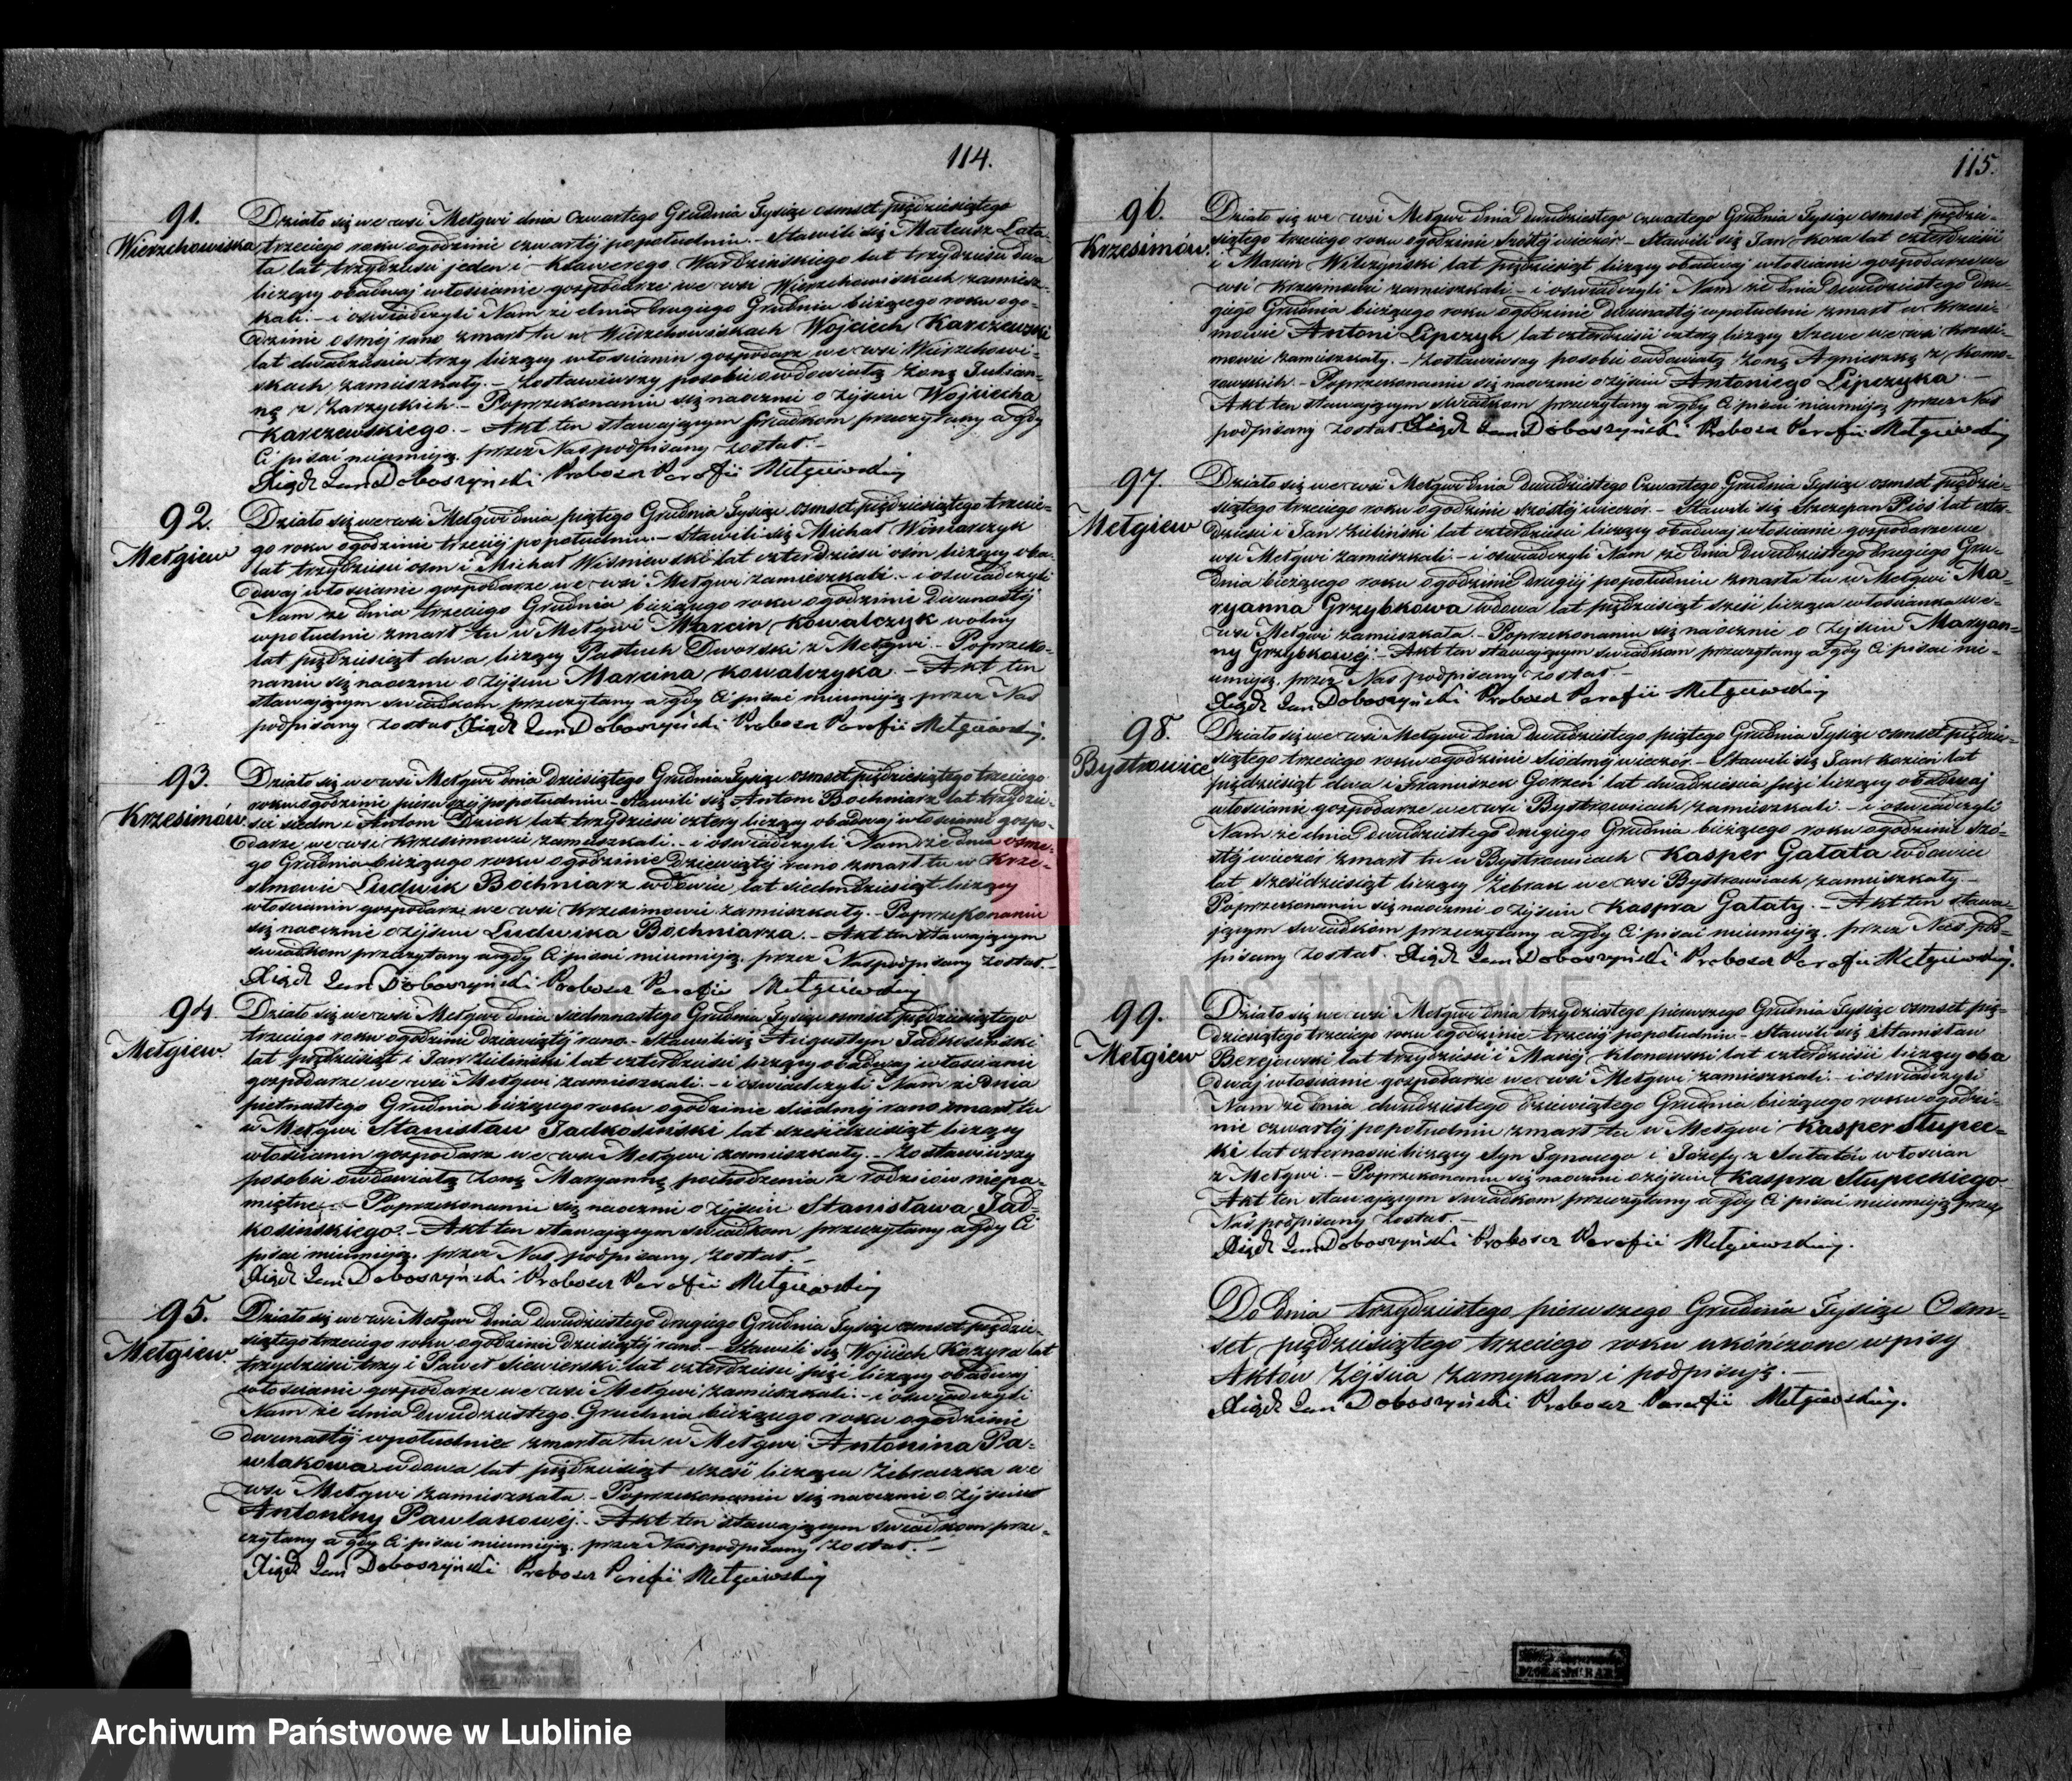 114.
91.
Wierzchowiska
Działo się we wsi Mełgwi dnia czwartego Grudnia Tysiąc osmset pięćdziesiątego
trzeciego roku o godzinie czwartej popołudniu. – Stawili się Mateusz Lata-
ta lat trzydzieści jeden i Xawerego Wardzińskiego lat trzydzieści dwa
liczący obadwaj włościanie gospodarze we wsi Wierzchowiskach zamiesz-
kali. – i oświadczyli Nam że dnia drugiego Grudnia bieżącego roku ogo-
dzinie osmej rano zmarł tu w Wierzchowiskach Wojciech Karczewski
lat dwadzieścia trzy liczący włościanin gospodarz we wsi Wierzchowi-
skach zamieszkały. – Zostawiwszy posobie owdowiałą żonę Julian-
nę z Zarzyckich. – Poprzekonaniu się naocznie o zejściu Wojciecha
Karczewskiego. – Akt ten stawającym świadkom przeczytany a gdy
Ci pisać nieumieją, przez Nas podpisany został. –
Xiądz Jan Doboszyński Proboszcz Parafii Mełgiewskiej
92.
Mełgiew
Działo się we wsi Mełgwi dnia piątego Grudnia Tysiąc osmset pięćdziesiątego trzecie-
go roku o godzinie trzeciej popołudniu. – Stawili się Michał Winiarczyk
lat trzydzieści osm i Michał Wiśniewski lat czterdzieści osm liczący oba-
dwaj włościanie gospodarze we wsi Mełgwi zamieszkali. – i oświadczyli
Nam że dnia trzeciego Grudnia bieżącego roku o godzinie Dwunastej
wpołudnie zmarł tu w Mełgwi Marcin Kowalczyk wolny
lat pięćdziesiąt dwa liczący Pastuch Dworski z Mełgwi. – Poprzeko-
naniu się naocznie o zejściu Marcina Kowalczyka. – Akt ten
stawającym świadkom przeczytany a gdy Ci pisać nieumieją, przez Nas
podpisany został. Xiądz Jan Doboszyński Proboszcz Parafii Mełgiewskiej.
93.
Krzesimów
Działo się we wsi Mełgwi dnia Dziesiątego Grudnia Tysiąc osmset pięćdziesiątego trzeciego
roku o godzinie pierwszej popołudniu. – Stawili się Antoni Bochniarz lat trzydzie-
ści siedm i Antoni Dziok lat trzydzieści cztery liczący obadwaj włościanie gospo-
darze we wsi Krzesimowie zamieszkali. – i oświadczyli Nam że dnia osme-
go Grudnia bieżącego roku o godzinie dziewiątej rano zmarł tu w Krze-
simowie Ludwik Bochniarz wdowiec, lat siedmdziesiąt liczący
włościanin gospodarz we wsi Krzesimowie zamieszkały. – Poprzekonaniu
się naocznie o zejściu Ludwika Bochniarza. – Akt ten stawającym
świadkom przeczytany a gdy Ci pisać nieumieją, przez Nas podpisany został. –
Xiądz Jan Doboszyński Proboszcz Parafii Mełgiewskiej
94.
Mełgiew.
Działo się we wsi Mełgwi dnia siedmnastego Grudnia Tysiąc osmset pięćdziesiątego
trzeciego roku o godzinie Dziewiątej rano. – Stawili się Augustyn Jadkosiński
lat pięćdziesiąt i Jan Zieliński lat czterdzieści liczący obadwaj włościanie
gospodarze we wsi Mełgwi zamieszkali. – i oświadczyli Nam że Dnia
pietnastego Grudnia bieżącego roku o godzinie siódmej rano zmarł tu
w Mełgwi Stanisław Jadkosiński lat sześćdziesiąt liczący
włościanin gospodarz we wsi Mełgwi zamieszkały. – Zostawiwszy
posobie owdowiałą żonę Maryannę pochodzenia z rodziców niepa-
miętne. – Poprzekonaniu się naocznie o zejściu Stanisława Jad-
kosińskiego. – Akt ten stawającym świadkom przeczytany a gdy Ci
pisać nieumieją, przez Nas podpisany został. –
Xiądz Jan Doboszyński Proboszcz Parafii Mełgiewskiej
95.
Mełgiew.
Działo się we wsi Mełgwi dnia Dwudziestego drugiego Grudnia Tysiąc osmset pięćdzie-
siątego trzeciego roku o godzinie Dziesiątej rano. – Stawili się Wojciech Kozyra lat
trzydzieści trzy i Paweł Siewierski lat czterdzieści pięć liczący obadwaj
włościanie gospodarze we wsi Mełgwi zamieszkali. – i oświadczyli
Nam że dnia Dwudziestego Grudnia bieżącego roku o godzinie
dwunastej wpołudnie zmarła tu w Mełgwi Antonina Pa-
wlakowa wdowa, lat pięćdziesiąt sześć licząca Żebraczka we
wsi Mełgwi zamieszkała. – Poprzekonaniu się naocznie o zejściu
Antoniny Pawlakowej. – Akt ten stawającym świadkom prze-
czytany a gdy Ci pisać nieumieją, przez Nas podpisany został. –
Xiądz Jan Doboszyński Proboszcz Parafii Mełgiewskiej
115.
96.
Krzesimów.
Działo się we wsi Mełgwi dnia Dwudziestego czwartego Grudnia Tysiąc osmset pięćdzie-
siątego trzeciego roku o godzinie szóstej wieczór. – Stawili się Jan Koza lat czterdzieści
i Marcin Wilczyński lat pięćdziesiąt liczący obadwaj włościanie gospodarze we
wsi Krzesimowie zamieszkali. – i oświadczyli Nam że dnia Dwudziestego dru-
giego Grudnia bieżącego roku o godzinie Dwunastej wpołudnie zmarł w Krzesi-
mowie Antoni Lipczyk lat czterdzieści cztery liczący Szewc we wsi Krzesi-
mowie zamieszkały. – Zostawiwszy posobie owdowiałą żonę Agnieszkę z Komo-
rowskich. – Poprzekonaniu się naocznie o zejściu Antoniego Lipczyka. –
Akt ten stawającym świadkom przeczytany a gdy Ci pisać nieumieją przez Nas
podpisany został. Xiądz Jan Doboszyński Proboszcz Parafii Mełgiewskiej
97.
Mełgiew
Działo się we wsi Mełgwi dnia Dwudziestego Czwartego Grudnia Tysiąc osmset pięćdzie-
siątego trzeciego roku o godzinie szóstej wieczór. – Stawili się Szczepan Pióś lat czter-
dzieści i Jan Zieliński lat czterdzieści liczący obadwaj włościanie gospodarze we
wsi Mełgwi zamieszkali. – i oświadczyli Nam że dnia Dwudziestego drugiego Gru-
dnia bieżącego roku o godzinie drugiej popołudniu zmarła tu w Mełgwi Ma-
ryanna Grzybkowa wdowa lat pięćdziesiąt sześć licząca włościanka we-
wsi Mełgwi zamieszkała. – Poprzekonaniu się naocznie o zejściu Maryan-
ny Grzybkowej. – Akt ten stawającym świadkom przeczytany a gdy Ci pisać nie-
umieją, przez Nas podpisany został. –
Xiądz Jan Doboszyński Proboszcz Parafii Mełgiewskiej
98.
Bystrowice
Działo się we wsi Mełgwi dnia Dwudziestego piątego Grudnia Tysiąc osmset pięćdzie-
siątego trzeciego roku o godzinie siódmej wieczór. – Stawili się Jan Kozień lat
pięćdziesiąt dwa i Franciszek Gorzeń lat dwadzieścia pięć liczący obadwaj
włościanie gospodarze we wsi Bystrowicach zamieszkali. – i oświadczyli
Nam że dnia Dwudziestego drugiego Grudnia bieżącego roku o godzinie szó-
stej wieczór zmarł tu w Bystrowicach Kasper Gałata wdowiec
lat sześćdziesiąt liczący Żebrak we wsi Bystrowicach zamieszkały. –
Poprzekonaniu się naocznie o zejściu Kaspra Gałaty. – Akt ten stawa-
jącym świadkom przeczytany a gdy Ci pisać nieumieją, przez Nas pod-
pisany został. Xiądz Jan Doboszyński Proboszcz Parafii Mełgiewskiej.
99.
Mełgiew
Działo się we wsi Mełgwi dnia trzydziestego pierwszego Grudnia Tysiąc osmset pię-
dziesiątego trzeciego roku o godzinie trzeciej popołudniu. – Stawili się Stanisław
Berejowski lat trzydzieści i Maciej Klonowski lat czterdzieści liczący oba
dwaj włościanie gospodarze we wsi Mełgwi zamieszkali. – i oświadczyli
Nam że dnia dwudziestego dziewiątego Grudnia bieżącego roku o godzi-
nie czwartej popołudniu zmarł tu w Mełgwi Kasper Słupec-
ki lat czternaście liczący Syn Ignacego i Józefy z Sutatów włościan
z Mełgwi. – Poprzekonaniu się naocznie o zejściu Kaspra Słupeckiego
Akt ten stawającym świadkom przeczytany a gdy Ci pisać nieumieją przez
Nas podpisany został. –
Xiądz Jan Doboszyński Proboszcz Parafii Mełgiewskiej.
Do dnia trzydziestego pierwszego Grudnia Tysiąc Osm-
set pięćdziesiątego trzeciego roku ukończone wpisy
Aktów Zejścia zamykam i podpisuję. –
Xiądz Jan Doboszyński Proboszcz Parafii Mełgiewskiej.
Archiwum Państwowe w Lublinie